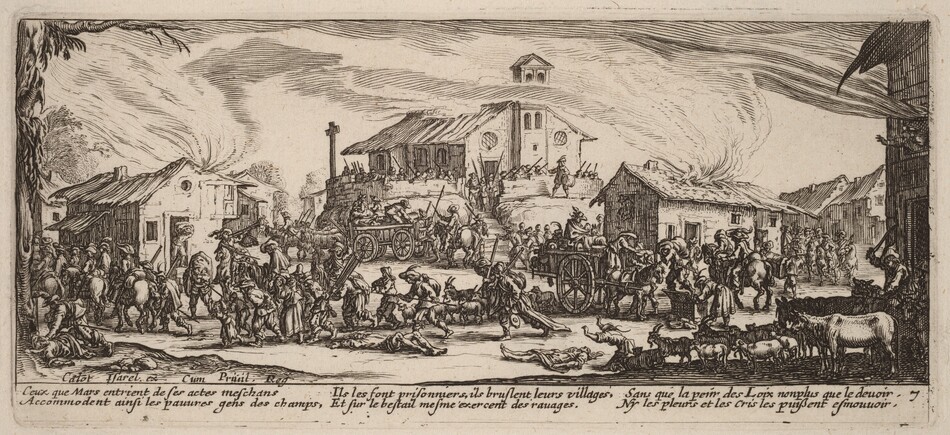 Callot Israel. ex. Cum Privil. Reg
Ceux que Mars entrient de ses actes meschans
Accommodent ainsi les pauvres gens des champs,
Ils les font prisonniers, ils bruslent leurs villages,
Et sur le bestail mesme exercent des ravages.
Sans que la peur des Loix non plus que le devoir.
Ny les pleurs et les cris les puissent esmouvoir.
7